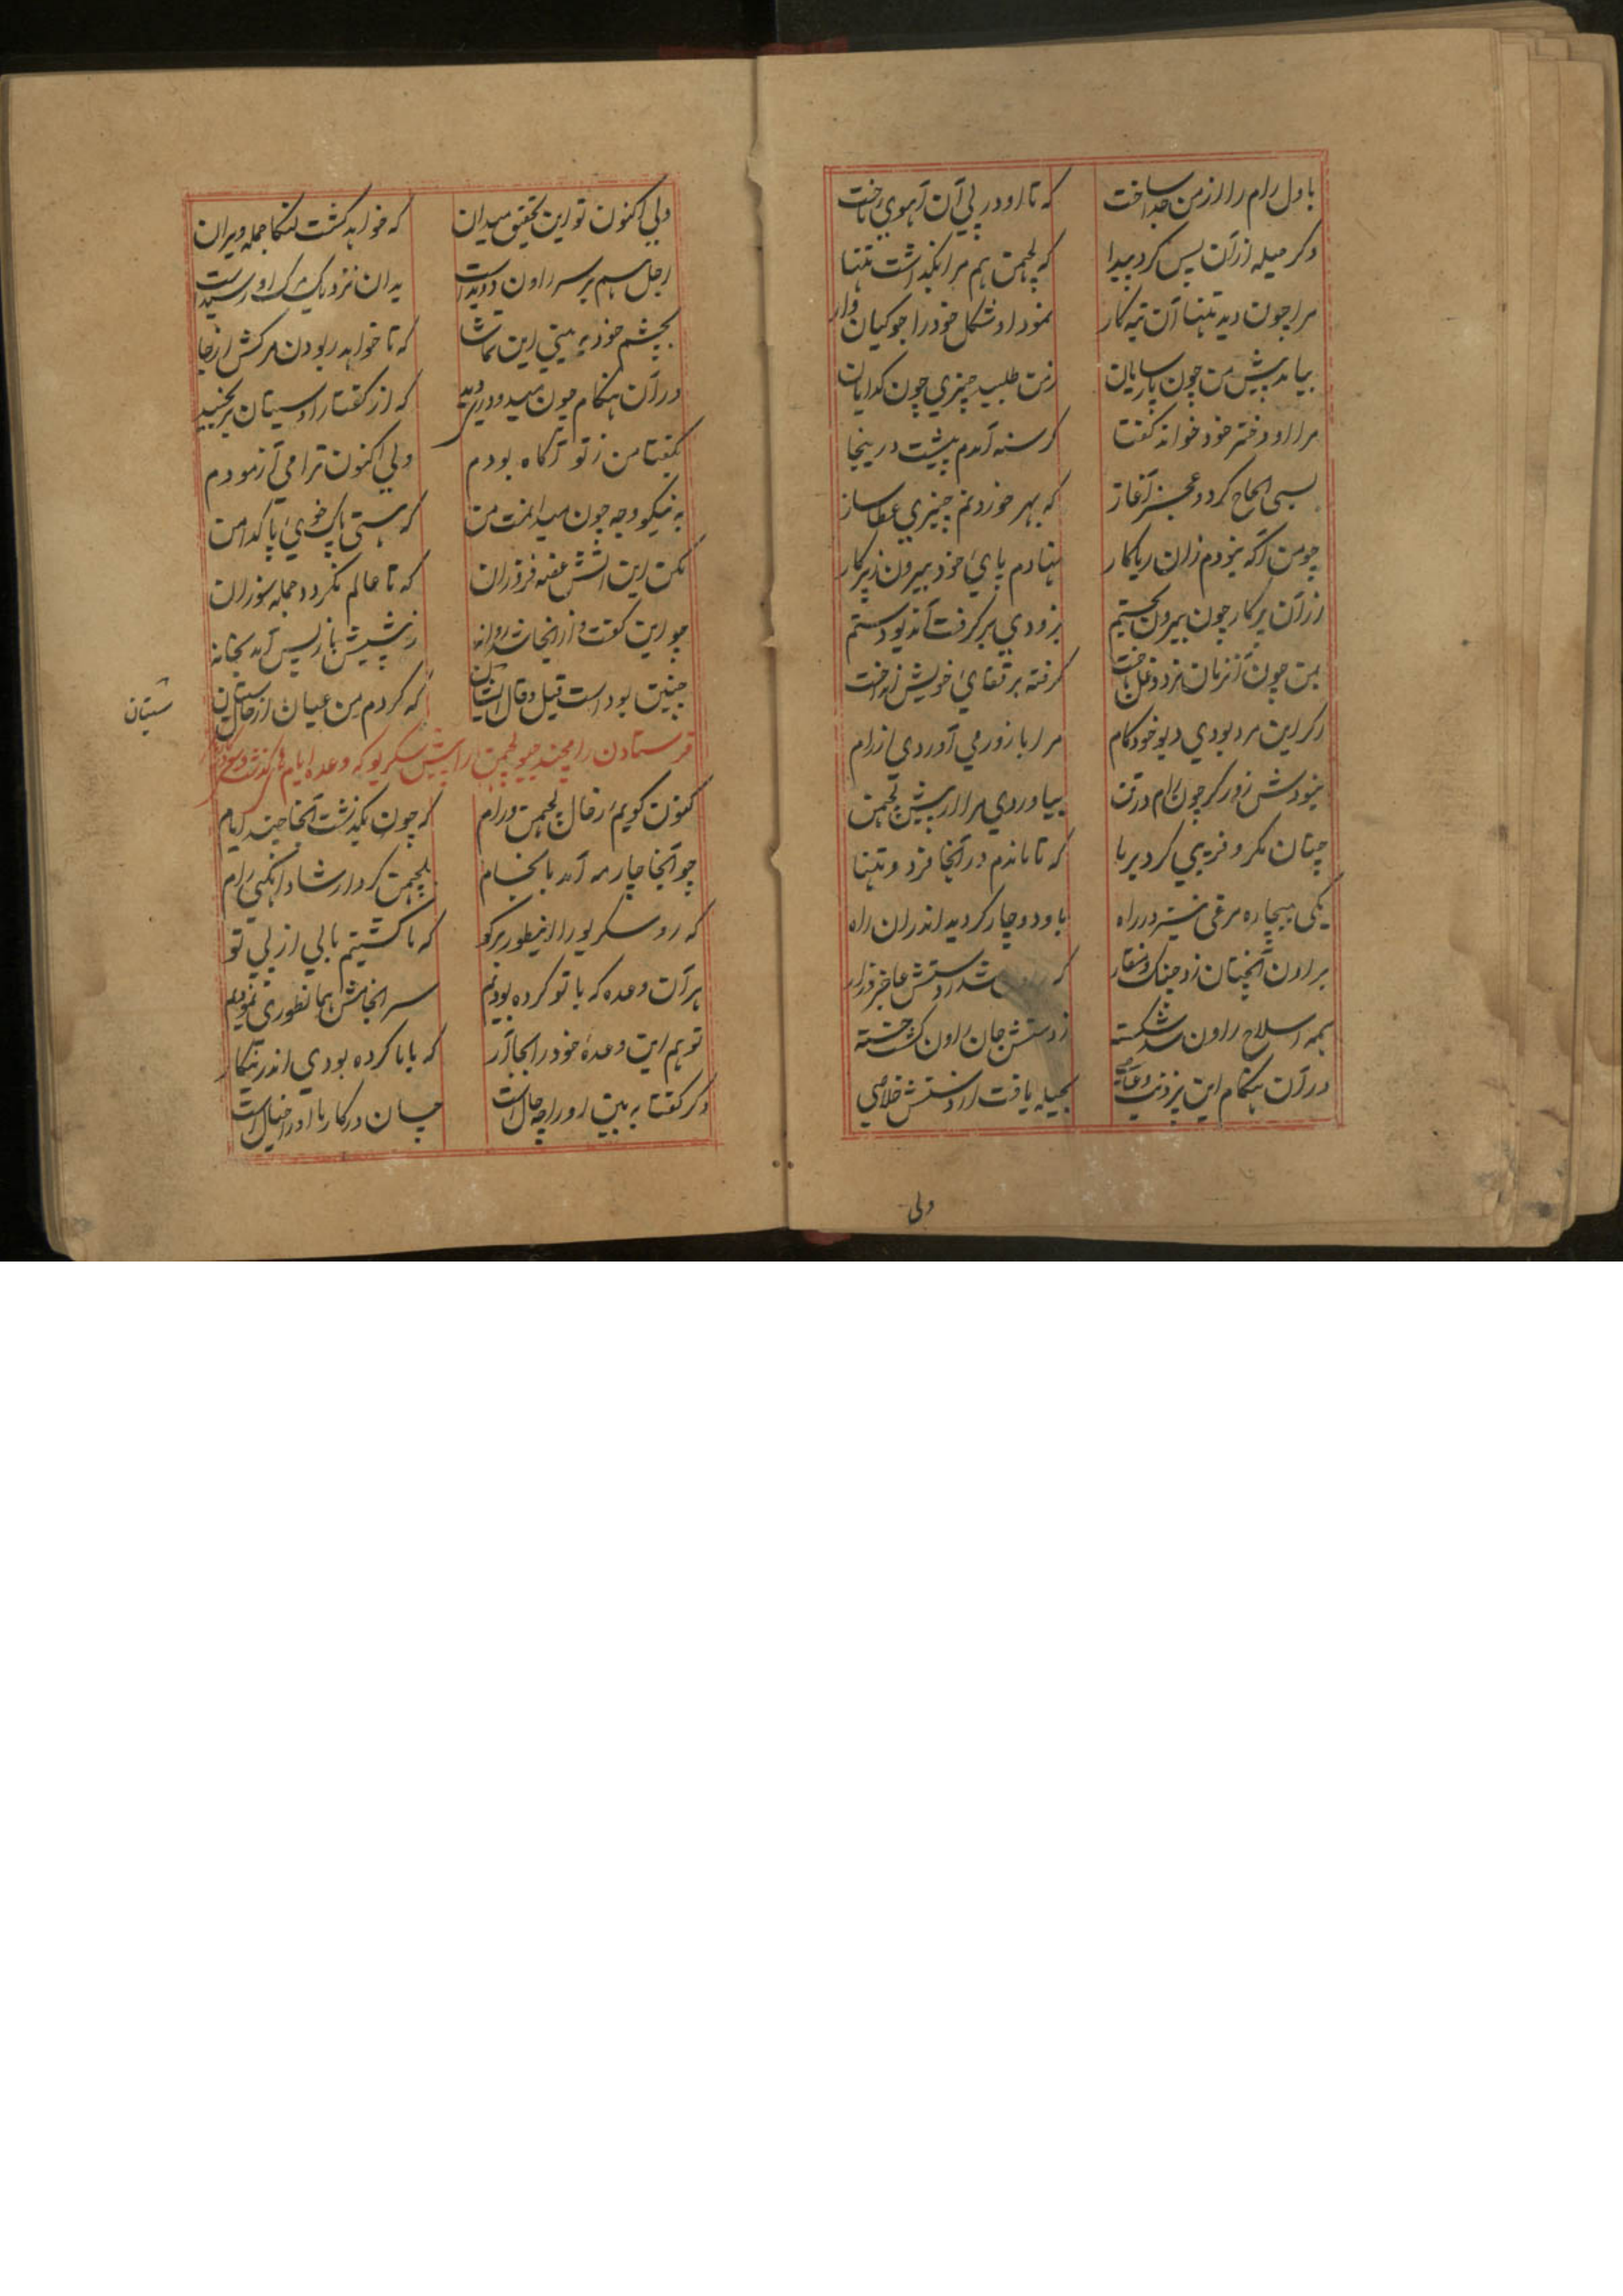 باول رام را از من جدا ساخت که تا او در پی آن آهوی تاخت
دکر حیله از آن پس کرد پیدا که لچهمن هم مرا بکذاشت تنها
مرا چون دید تنها آن تبه کار نمود او شکل خود را جوکیان وار
بیامد پیش من چون پارسایان ز من طلبید چیزی چون کدایان
مرا او دختر خود خواند کفتا کرسنه آمدم پیشت درینجا
بسی الحاح کرد و عجز آغاز که بهر خوردنم چیزی عطا ساز
چو من آکه نبودم زان ریاکار نهادم پای خود بیرون ز پرکار
از آن پرکار چون بیرون بجستم بزودی بر کرفت آندیو دستم
بمن چون آنزمان نرد دغل باخت کرفته بر قفای خویش انداخت
اکر این مرد بودی دیو خودکام مرا با زور می آوردی از رام
نبودش زور کر چون رام در تن بیاوردی مرا از پیش لچهمن
چنان مکر و فریبی کرد برپا که تا ماندم در آنجا فرد و تنها
یکی بیچاره مرغی نیز در راه باو دوچار کردید اندران راه
براون آنچنان زد چنک و منقار که شد از دستش عاجز و زار
همه اسلاح راون شد شکسته ز دستش جان راون کشت خسته
در آن هنکام این بحیله یافت از دستش خلاصی
ولی
ولی اکنون تو این تحقیق میدان که خواهد کشت لنکا جمله ویران
اجل هم بر سر راون دویداست بدان نزدیک مرک او رسیداست
بچشم خود به بینی این تماشا که تا خواهد ربودن مرکش از جا
در آن هنکام چون میدودری دید که از کفتار او سیتان برنجید
بکفتا من ز تو آکاه بودم ولی اکنون ترا می آزمودم
به نیکو وجه چون میدانمت من که هستی پاک خوی پاکدامن
مکن این آتش غصه فروزان که تا عالم نکردد جمله سوزان
چو این کفت و از آنجا شد روانه ز پیشش باز پس آمد بخانه
چنین بود است قیل و قال ایشان که کردم من عیان از حال سیتان
سیتان
فرستادن رامچند جیو لچمن را پیش سکریو که وعده ایام
کنون کویم ز حال لچهمن و رام که چون بکذشت آنجا چند ایام
چو آنجا چار مه آمد بانجام بلچهمن کرد ارشاد اینکهی رام
که رو سکریو را اینطور بر کو که ما کشتیم بالی از پی تو
هر آن وعده که با تو کرده بودیم سرانجامش همانطوری نمودیم
تو هم این وعدهٔ خود را بجا آر که با ما کرده بودی اندرینکار
دکر کفتا به بین او را چه حال است چسان در کار ما او را خیال است